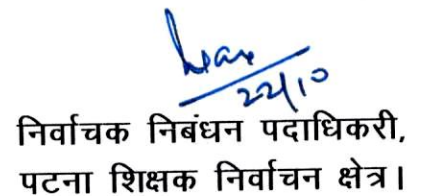 22/10
निर्वाचक निबंधन पदाधिकरी,
पटना शिक्षक निर्वाचन क्षेत्र।